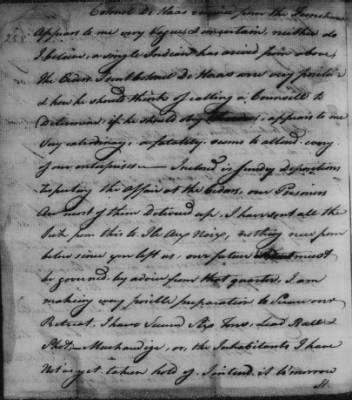 Colonel De Haas retreat from the
Appears to me very vague & uncertain, neither do
I believe, a single Indian has arived from above
the Cedars. I sent Colonel De Haas one very positive
& how he should think of calling a Councill to
Determine, if he should obey appears to me
very extraordinary, a fatality seems to attend every
of our enterprises — Inclosed is sundry depositions
respecting the Affair at the Cedars, our Prisoners
Are most of them delivered up. I have sent all the
Sick from this to Ile Aux Noix, nothing new from
below since you left us, our future must
be govern'd by advice from that quarter. I am
making every posible preparation to Secure our
Retreat. I have Secured Six Tons, Lead Ball &
Shot, Merchandize, or, the Inhabitants I have
Not as yet taken hold of. I intend it tomorrow